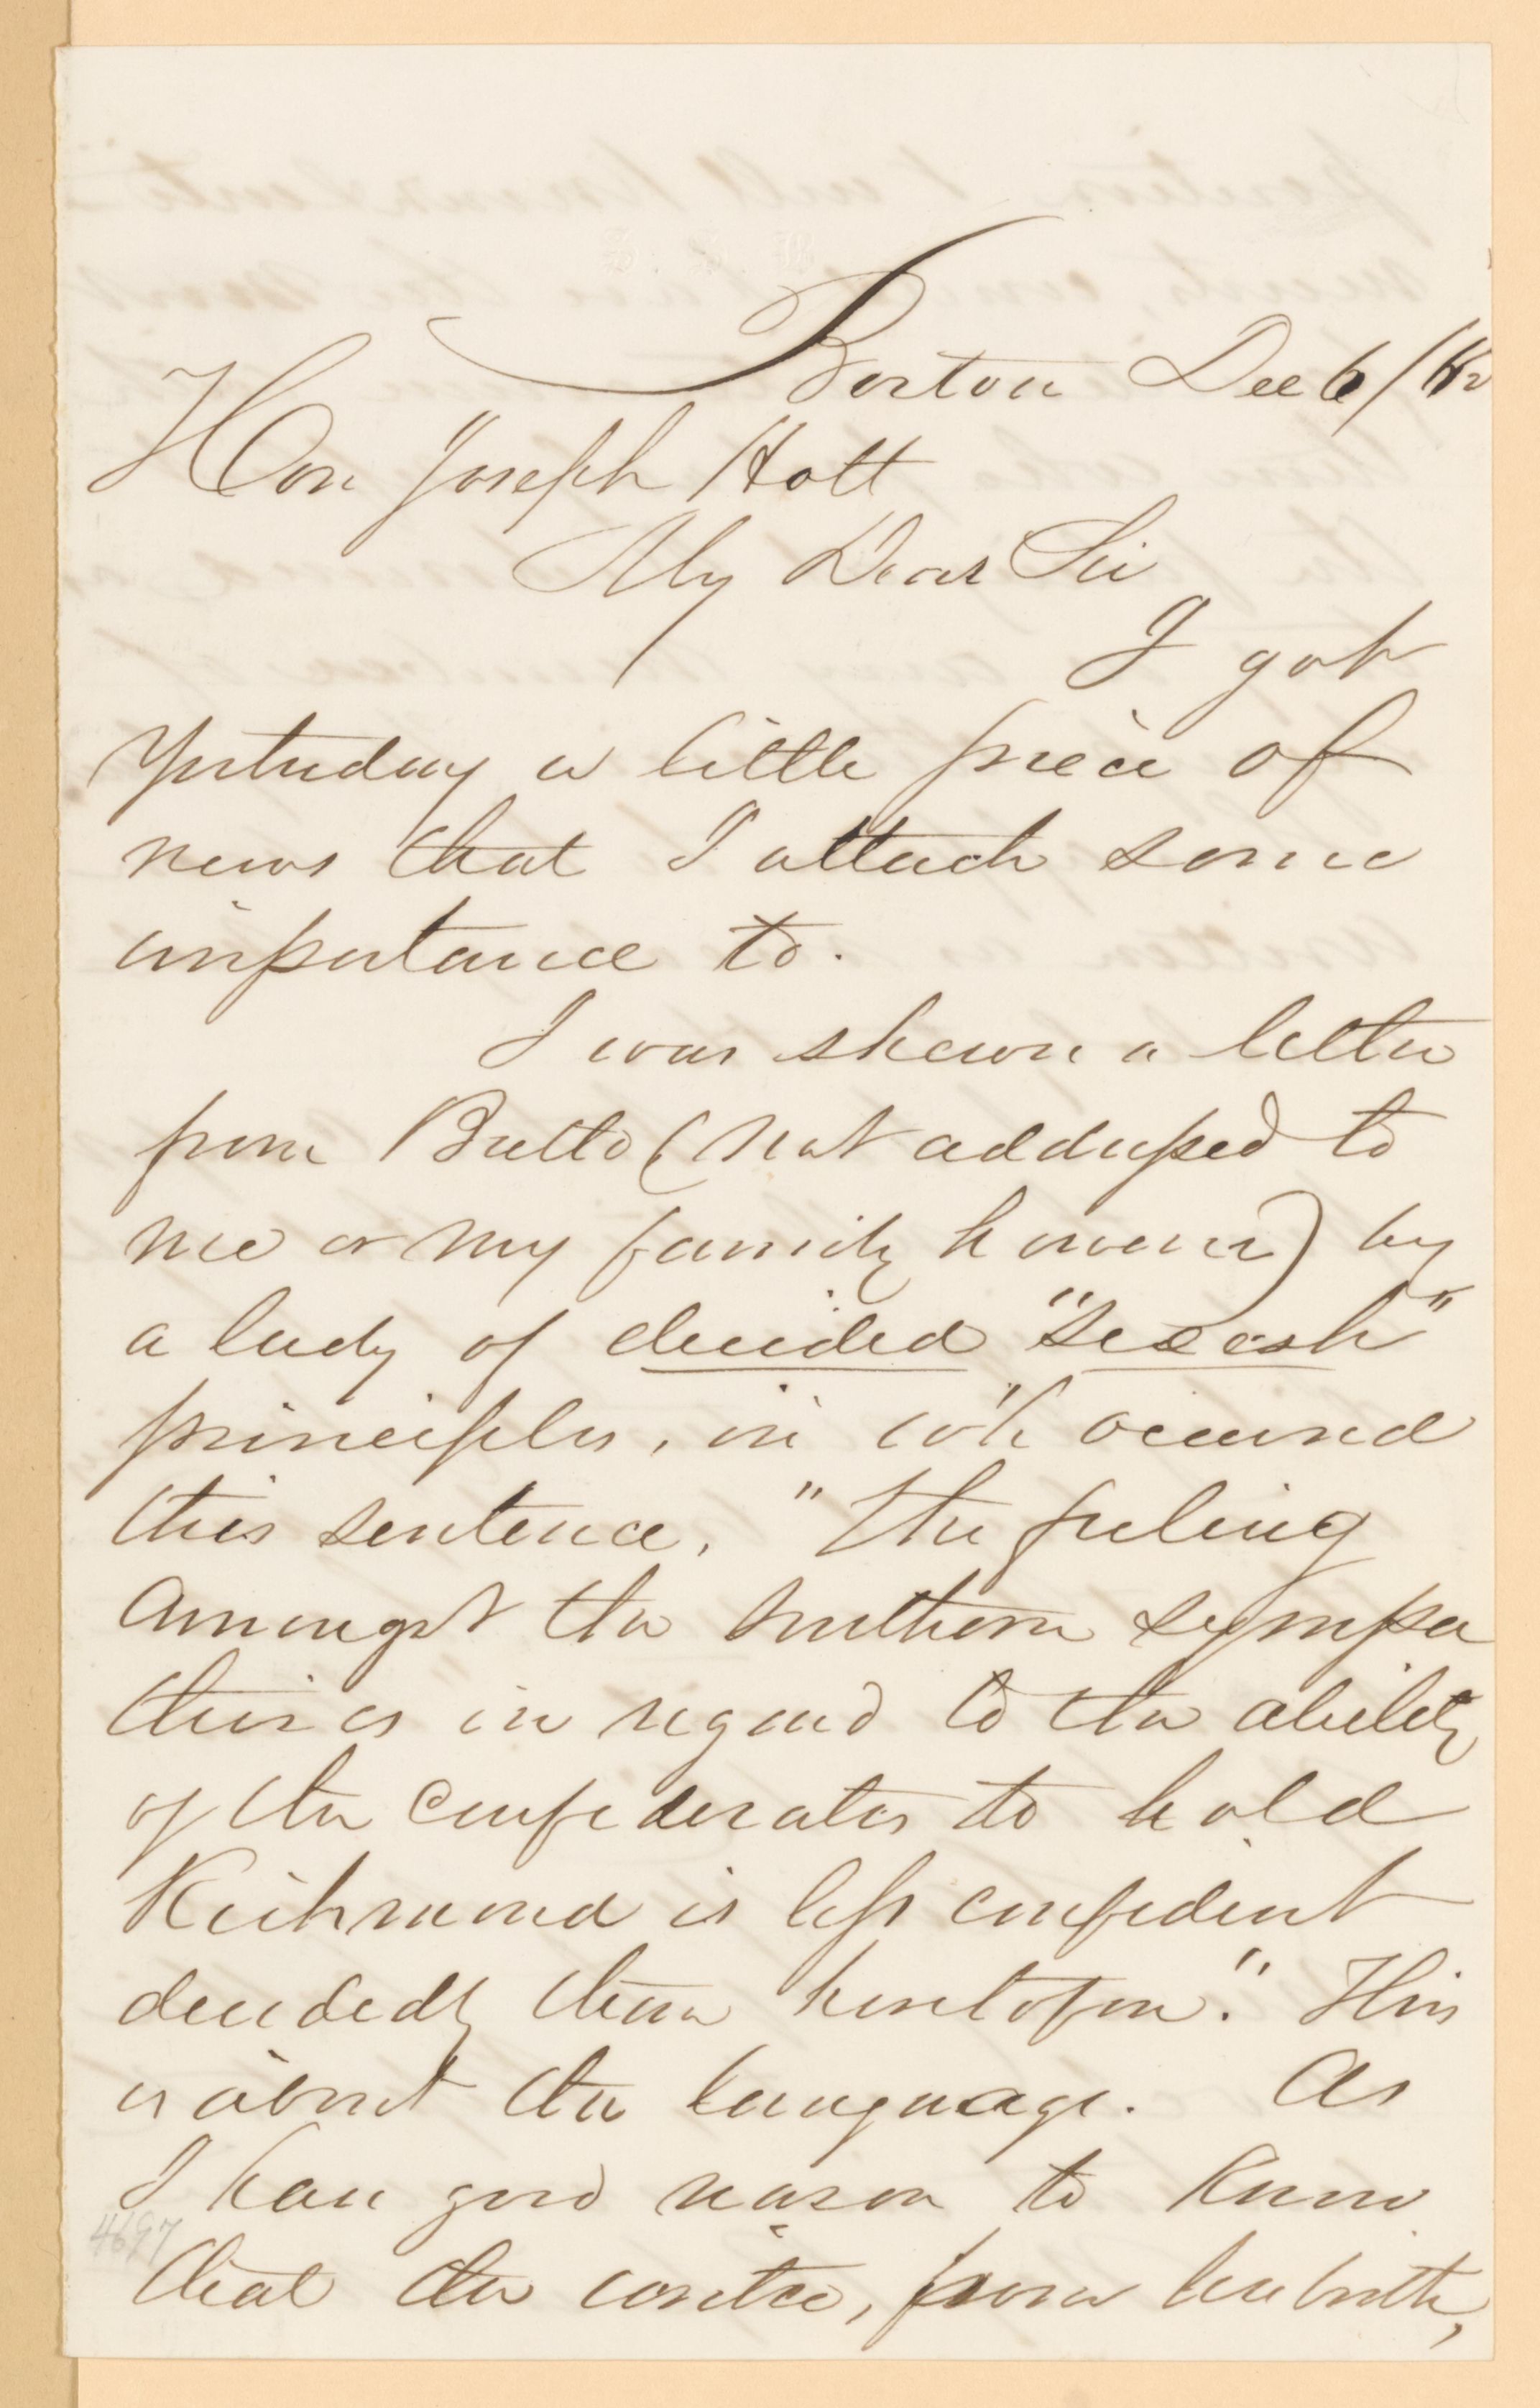 Boston Dec 6/62
Hon Joseph Holt
My Dear Sir
I got
yesterday a little piece of
news that I attach some
importance to.
I was shewn a letter
from Balto (not addressed to
me or my family however) by
a lady of decided "Secesh"
principles, in wh occurred
this sentence, "The feeling
amongst the Southern sympa
thisers in regard to the ability
of the Confederates to hold
Richmond is less confident
decidedly than heretofore." This
is about the language. As
I have good reason to know
that the writer, from her birth,
4697